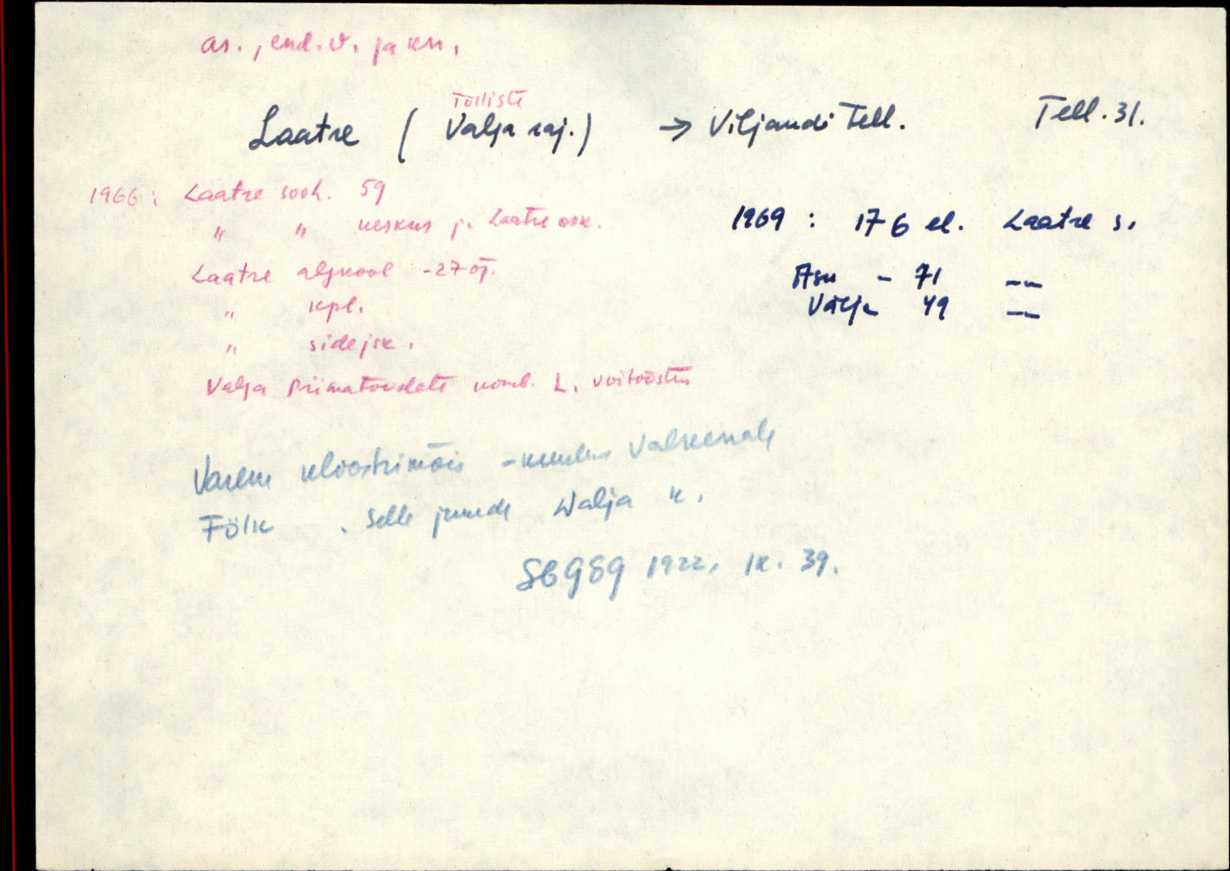 as., end. v. ja kn.
Tõlliste
Laatre ( Valga raj.) → Viljandi Tell. Tell. 31.
1966: Laatre sovh. 59
" " keskus j. Laatre osk.
1969 : 176 el. Laatre s.
Laatre algkool - 27 õp.
Asu - 71 —"—
" kpl.
Välja 49 —"—
" sidejsk.
Valga Piimatoodete komb. L. võitööstus
Varem kloostrimõis - kuulus Valkenale
Fölk . Selle juurde Walja k.
SBGEG 1922, lk. 39.